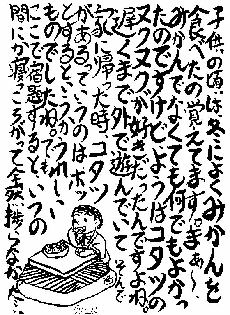 子供の頃は冬によくみかんを
食べたの覚えてますっ。まぁ〜、
みかんでなくても何でもよかっ
たのですけど、ようはコタツの
ヌクヌクが好きだったんですよね。
遅くまで外で遊んでいて そんで
家に帰った時 コタツ
があるっていうのはホッ
とするというかうれしい
ものでしたね。でも、
ここで宿題すると、いつの
間にか寝ころがって全然捗らなかった…